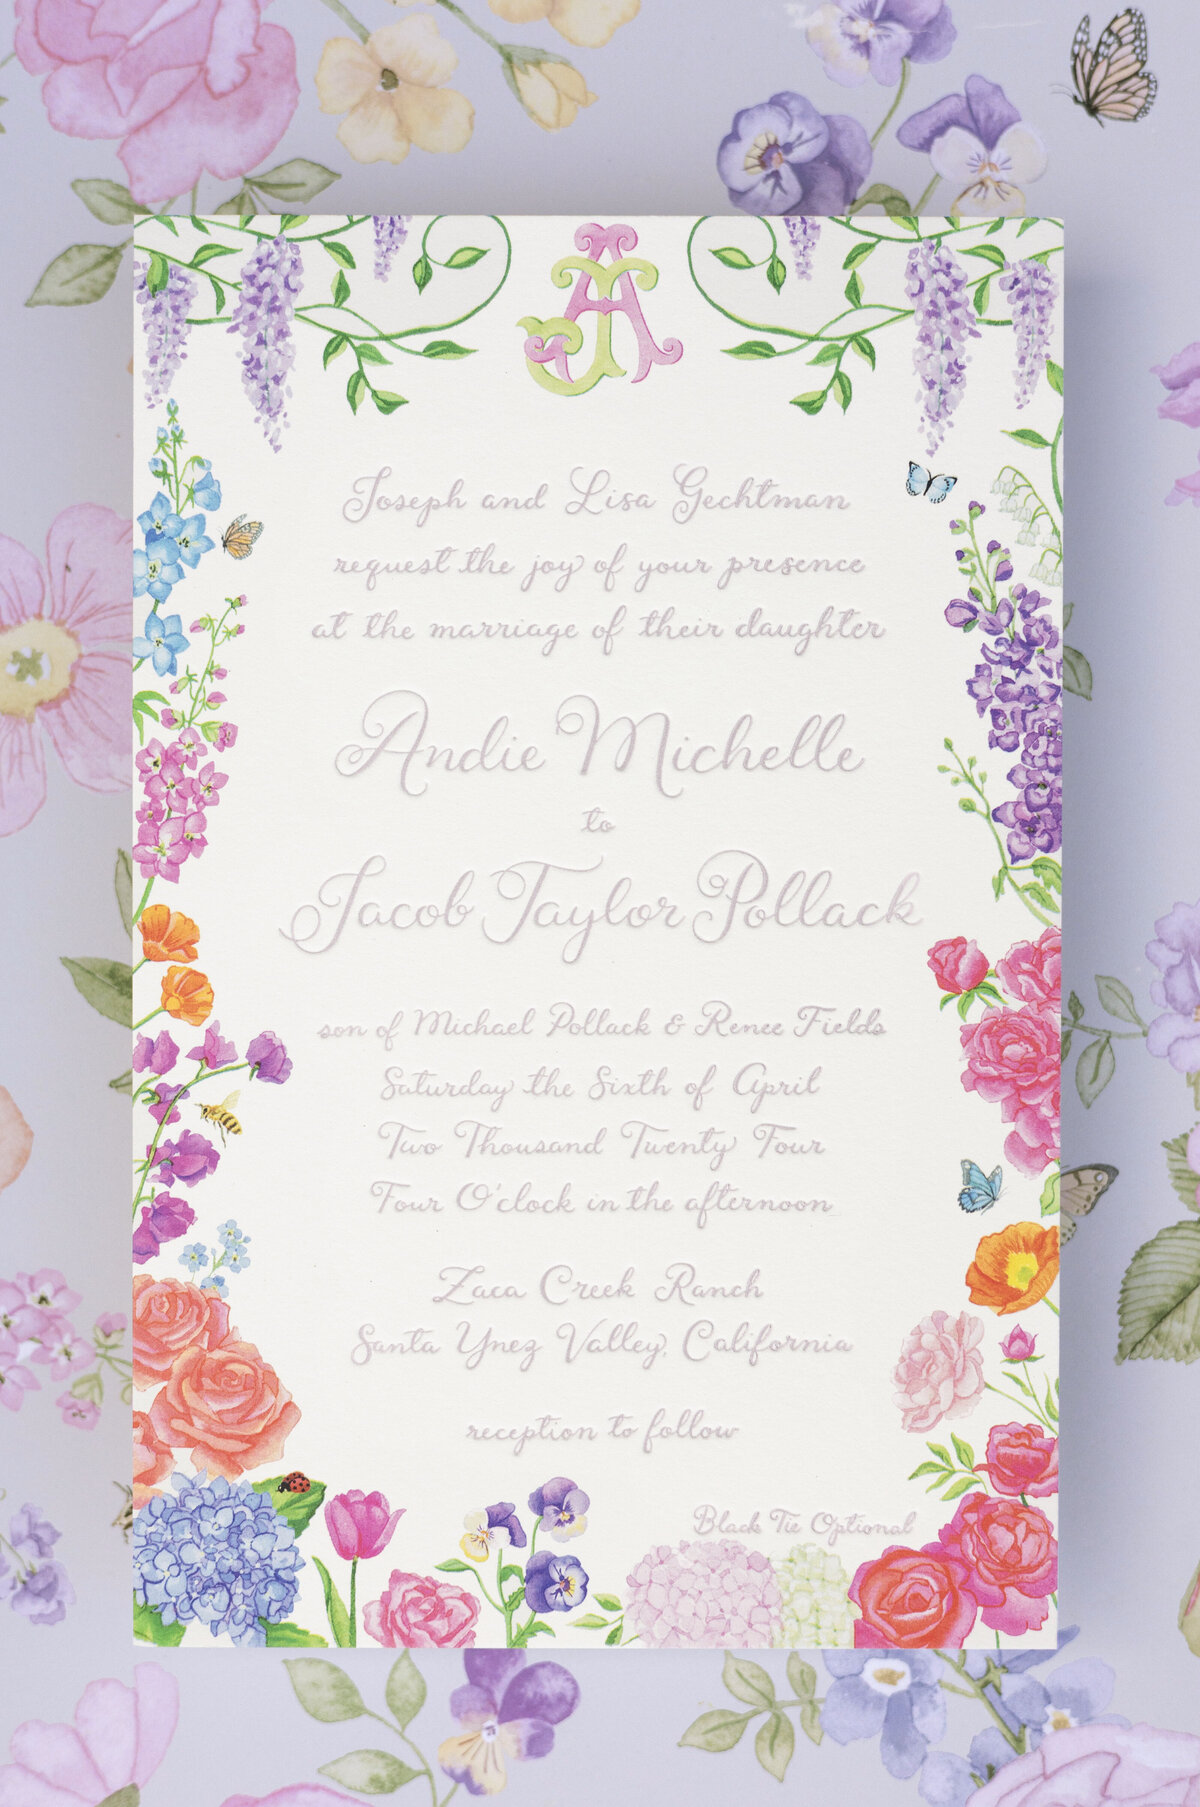 AJ
Joseph and Lisa Gechtman
request the joy of your presence
at the marriage of their daughter
Andie Michelle
to
Jacob Taylor Pollack
son of Michael Pollack & Renee Fields
Saturday the Sixth of April
Two Thousand Twenty Four
Four O'clock in the afternoon
Zaca Creek Ranch
Santa Ynez Valley, California
reception to follow
Black Tie Optional